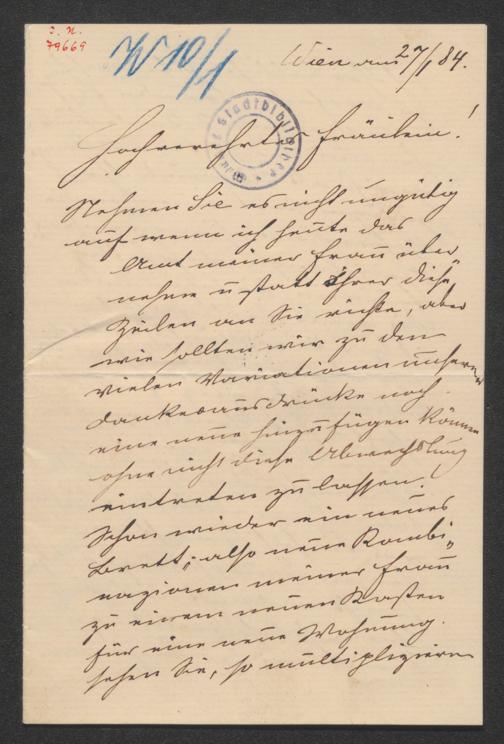 J. N.
79669
W 10/1
Wien am 27/1 84.
Stadtbibliothek
Hochverehrtes Fräulein!
Nehmen Sie es nicht ungütig
auf wenn ich heute das
Amt meiner Frau über
nehme u statt ihrer diese
Zeilen an Sie richte, aber
wie sollten wir zu den
vielen Variationen unserer
Dankesausdrücke noch
eine neue hinzufügen können
ohne nicht diese Abwechslung
eintreten zu lassen.
Schon wieder ein neues
Brett; also neue Kombi„
nazionen meiner Frau
zu einem neuen Kasten
für eine neue Wohnung.
sehen Sie, so multipliziren